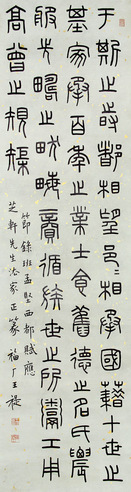 于斯之時都=相望邑=相屬國藉十世之
基家承百年之業士食舊德之名氏農
服先疇之畎畝商循族世之所鬻工用
高曾之規矩
節錄班孟堅西都賦應
芝軒先生法家正篆 福厂王禔